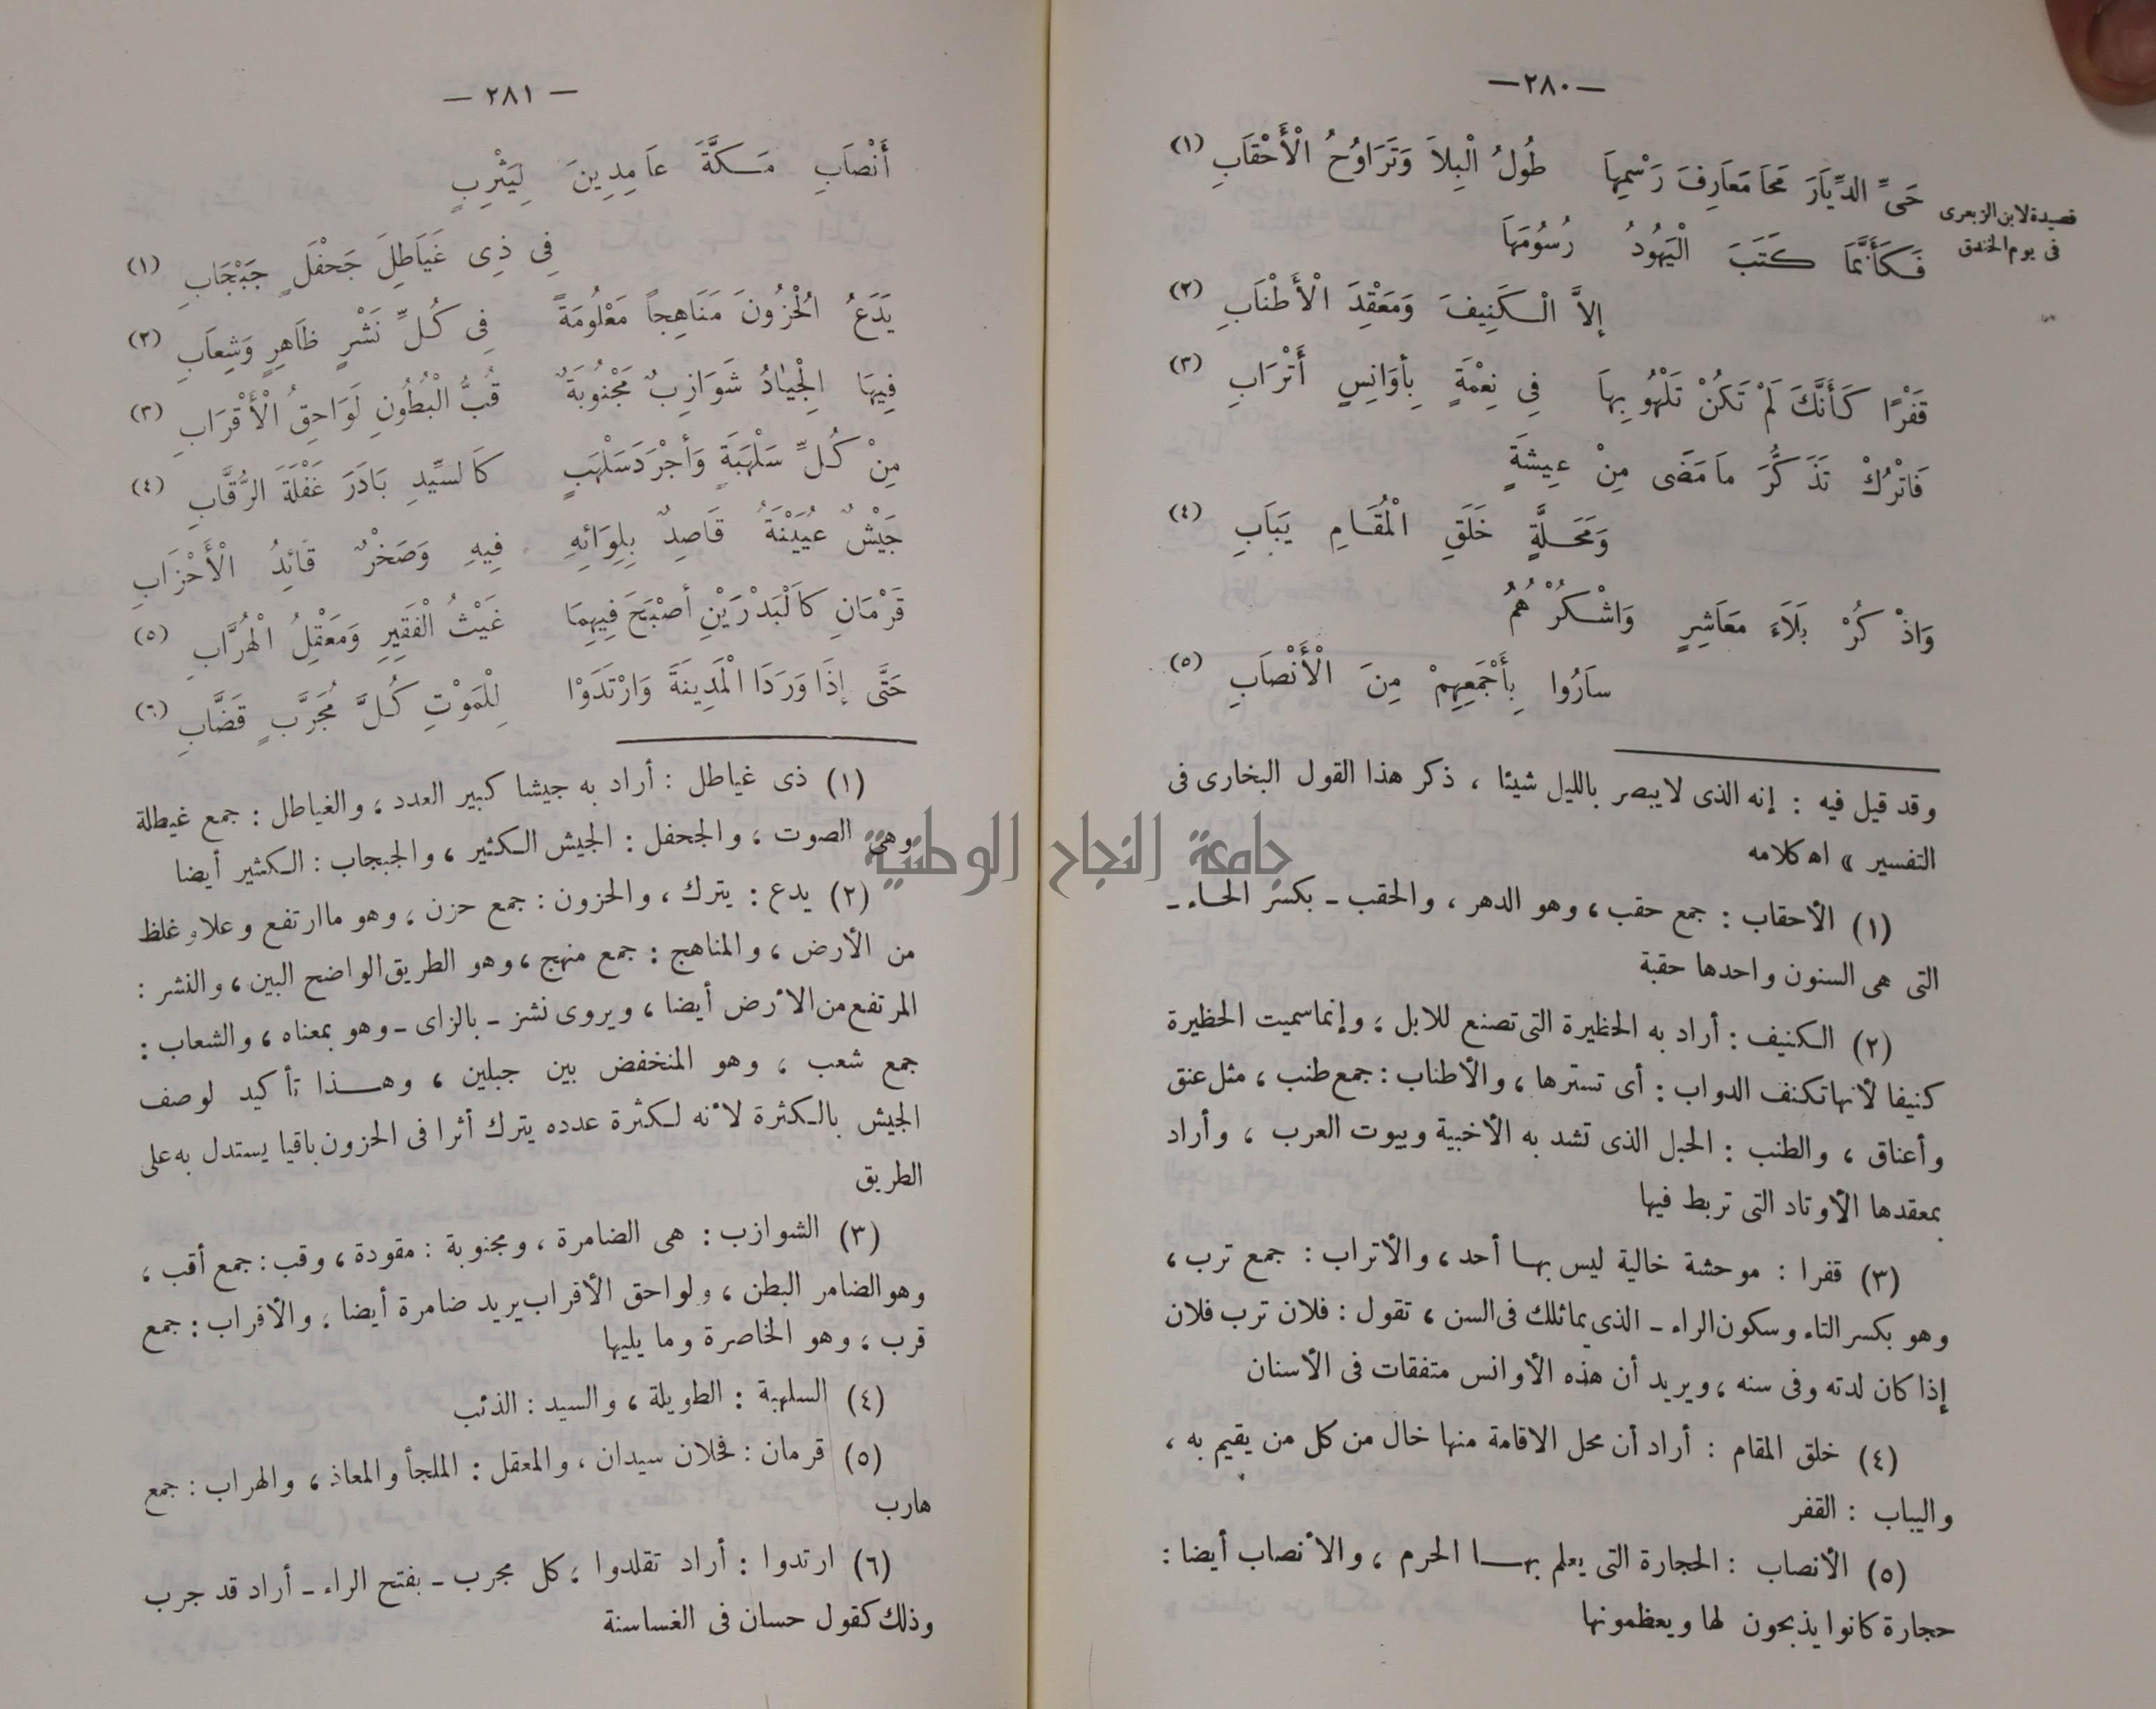 —٢٨٠—
قصيدة لابن الزبعرى
فى يوم الخندق
حَىِّ الدِّيَارَ مَحَا مَعَارِفَ رَسْمِهَا طُولُ الْبِلاَ وَتَرَاوُحُ الْأَحْقَابِ (١)
فَكَأَنَّمَا كَتَبَ الْيَهُودُ رُسُومَهَا
إلاَّ الْكَنِيفَ وَمَعْقِدَ الْأَطْنَابِ (٢)
قَفْرًا كَأَنَّكَ لَمْ تَكُنْ تَلْهُو بِهَا فِى نِعْمَةٍ بِأَوَانِسٍ أَتْرَابِ (٣)
فَاتْرُكْ تَذَكُّرَ مَا مَضَى مِنْ عِيشَةٍ
وَمَحَلَّةٍ خَلَقِ الْمُقَامِ يَبَابِ (٤)
وَاذْكُرْ بَلَاءَ مَعَاشِرٍ وَاشْكُرْهُمُ
سَارُوا بِأَجْمَعِهِمْ مِنَ الْأَنْصَابِ (٥)
وقد قيل فيه : إنه الذى لا يبصر بالليل شيئا ، ذكر هذا القول البخارى فى
التفسير » اه كلامه
(١) الأحقاب : جمع حقب ، وهو الدهر ، والحقب ـ بكسر الحاء ـ
التى هى السنون واحدها حقبة
(٢) الكنيف : أراد به الحظيرة التى تصنع للابل ، وإنما سميت الحظيرة
كنيفا لأنها تكنف الدواب : أى تسترها ، والأطناب : جمع طنب ، مثل عنق
وأعناق ، والطنب : الحبل الذى تشد به الأخبية وبيوت العرب ، وأراد
بمعقدها الأوتاد التى تربط فيها
(٣) قفرا : موحشة خالية ليس بها أحد ، والأتراب : جمع ترب ،
وهو بكسر التاء وسكون الراء ـ الذى يماثلك فى السن ، تقول : فلان ترب فلان
إذا كان لدته وفى سنه ، ويريد أن هذه الأوانس متفقات فى الأسنان
(٤) خلق المقام : أراد أن محل الاقامة منها خال من كل من يقيم به ،
واليباب : القفر
(٥) الأنصاب : الحجارة التى يعلم بها الحرم ، والأنصاب أيضا :
حجارة كانوا يذبحون لها ويعظمونها
— ٢٨١ —
أَنْصَابِ مَكَّةَ عَامِدِينَ لِيَثْرِبٍ
فِى ذِى غَيَاطِلَ جَحْفَلٍ جَبْجَابِ (١)
يَدَعُ الْحُزُونَ مَنَاهِجاً مَعْلُومَةً فِى كُلِّ نَشْرٍ ظَاهِرٍ وَشِعَابِ (٢)
فِيهَا الْجِيَادُ شَوَازِبٌ مَجْنُوبَةٌ قُبُّ الْبُطُونِ لَوَاحِقُ الْأَقْرَابِ (٣)
مِنْ كُلِّ سَلْهَبَةٍ وَأَجْرَدَ سَلْهَبٍ كَالسِّيدِ بَادَرَ غَفْلَةَ الرُّقَّابِ (٤)
جَيْشٌ عُيَيْنَةُ قَاصِدٌ بِلِوَائِهِ فِيهِ وَصَخْرٌ قَائِدُ الْأَحْزَابِ
قَرْمَانِ كَالْبَدْرَيْنِ أَصْبَحَ فِيهِمَا غَيْثُ الْفَقِيرِ وَمَعْقِلُ الْهُرَّابِ (٥)
حَتَّى إِذَا وَرَدَا الْمَدِينَةَ وَارْتَدَوْا لِلْمَوْتِ كُلَّ مُجَرَّبٍ قَضَّابِ (٦)
(١) ذى غياطل : أراد به جيشا كبير العدد ، والغياطل : جمع غيطلة
وهى الصوت ، والجحفل : الجيش الكثير ، والجبجاب : الكثير أيضا
(٢) يدع : يترك ، والحزون : جمع حزن ، وهو ما ارتفع وعلا وغلظ
من الأرض ، والمناهج : جمع منهج ، وهو الطريق الواضح البين ، والنشر :
المرتفع من الأرض أيضا ، ويروى نشز ـ بالزاى ـ وهو بمعناه ، والشعاب :
جمع شعب ، وهو المنخفض بين جبلين ، وهذا تأكيد لوصف
الجيش بالكثرة لأنه لكثرة عدده يترك أثرا فى الحزون باقيا يستدل به على
الطريق
(٣) الشوازب : هى الضامرة ، ومجنوبة : مقودة ، وقب : جمع أقب ،
وهو الضامر البطن ، ولواحق الأقراب يريد ضامرة أيضا ، والأقراب : جمع
قرب ، وهو الخاصرة وما يليها
(٤) السلهبة : الطويلة ، والسيد : الذئب
(٥) قرمان : فحلان سيدان ، والمعقل : الملجأ والمعاذ ، والهراب : جمع
هارب
(٦) ارتدوا : أراد تقلدوا ، كل مجرب ـ بفتح الراء ـ أراد قد جرب
وذلك كقول حسان فى الغساسنة
جامعة النجاح الوطنية